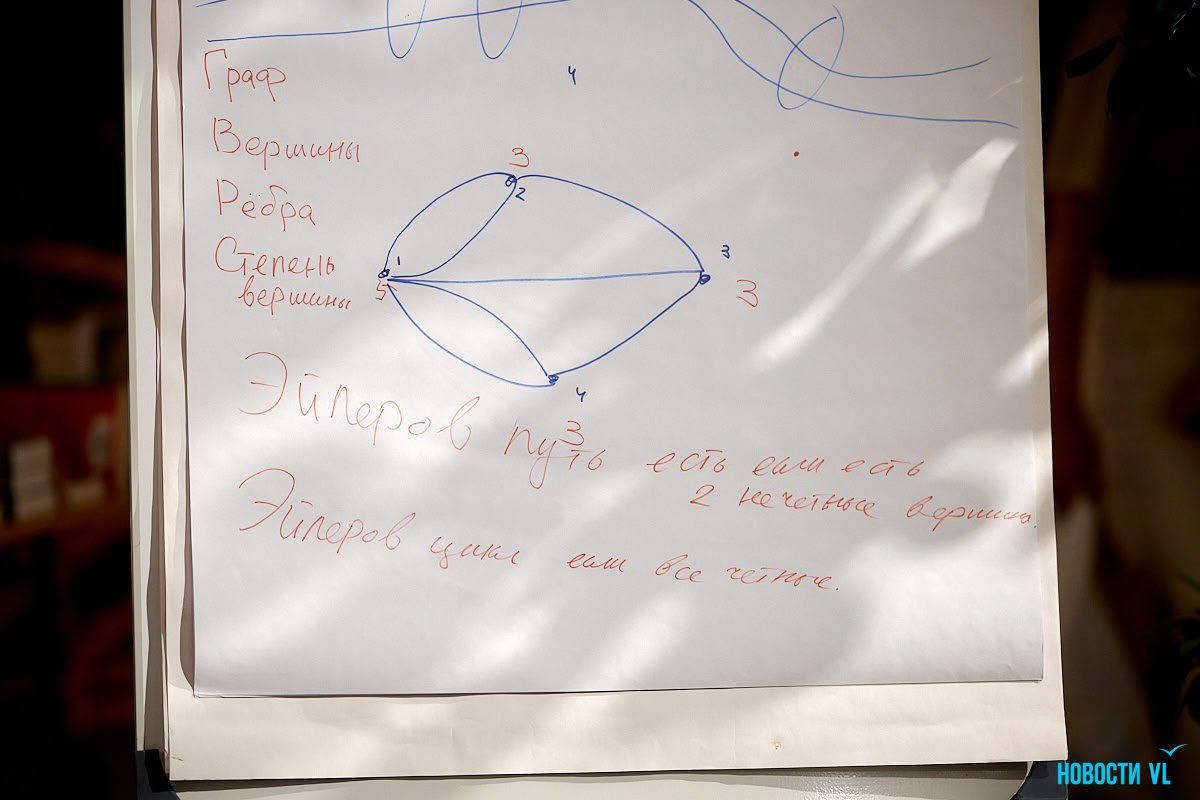 4
Граф
Вершины
3
2
Рёбра
1
3
Степень
5
3
вершины
4
3
Эйлеров путь есть если есть
2 нечетные вершины.
Эйлеров цикл если все четные.
НОВОСТИ VL